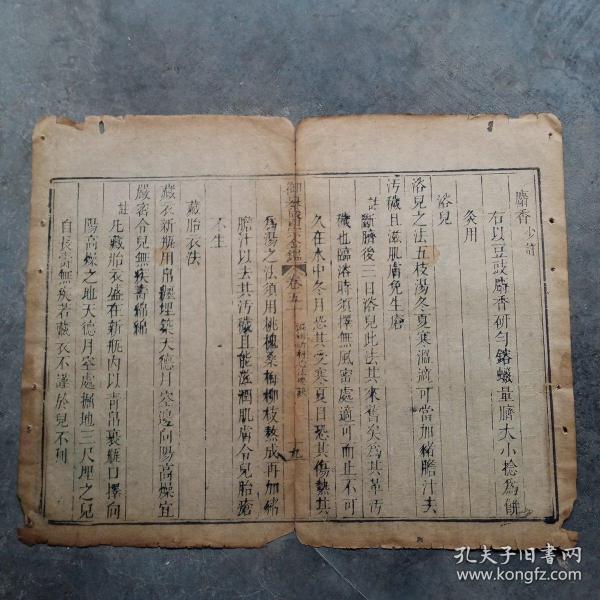 麝香少許
右以豆豉麝香研勻鎔蠟量臍大小捻為餅
灸用
浴兒
浴兒之法五枝湯冬夏寒溫適可當加豬膽汁去
污穢且滋肌膚免生瘡
註斷臍後三日浴兒此法其來舊矣為其革汚
穢也臨浴時須擇無風密處適可而止不可
久在水中冬月恐其受寒夏月恐其傷熱其
御纂醫宗金鑑 卷五十 幼科心法要訣 十九
為湯之法須用桃槐桑梅柳枝熬成再加豬
膽汁以去其汚穢且能滋潤肌膚令兒胎瘡
不生
藏胎衣法
藏衣新瓶用帛纏埋築天德月空邊向陽高燥宜
嚴密令兒無疾壽綿綿
註凡藏胎衣盛在新瓶內以青帛裹瓶口擇向
陽高燥之地天德月空處掘地三尺埋之兒
自長壽無疾若藏衣不謹於兒不利
孔夫子旧书网
www.kongfz.com